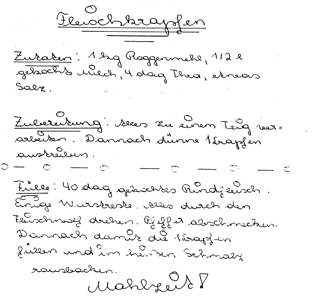 Fleischkrapfen
Zutaten: 1 kg Roggenmehl, 1/2 l
gekocht Milch, 4 dag Thea, etwas
Salz.
Zubereitung: Alles zu einem Teig ver-
arbeiten. Dannach dünne Krapfen
austreiben.
Fülle: 40 dag gekochtes Rindfleisch.
Einige Wurstreste. Alles durch den
Fleischwolf drehen. Pfeffer abschmecken.
Dannach damit die Krapfen
füllen und im heißen Schmalz
rausbacken.
Mahlzeit!